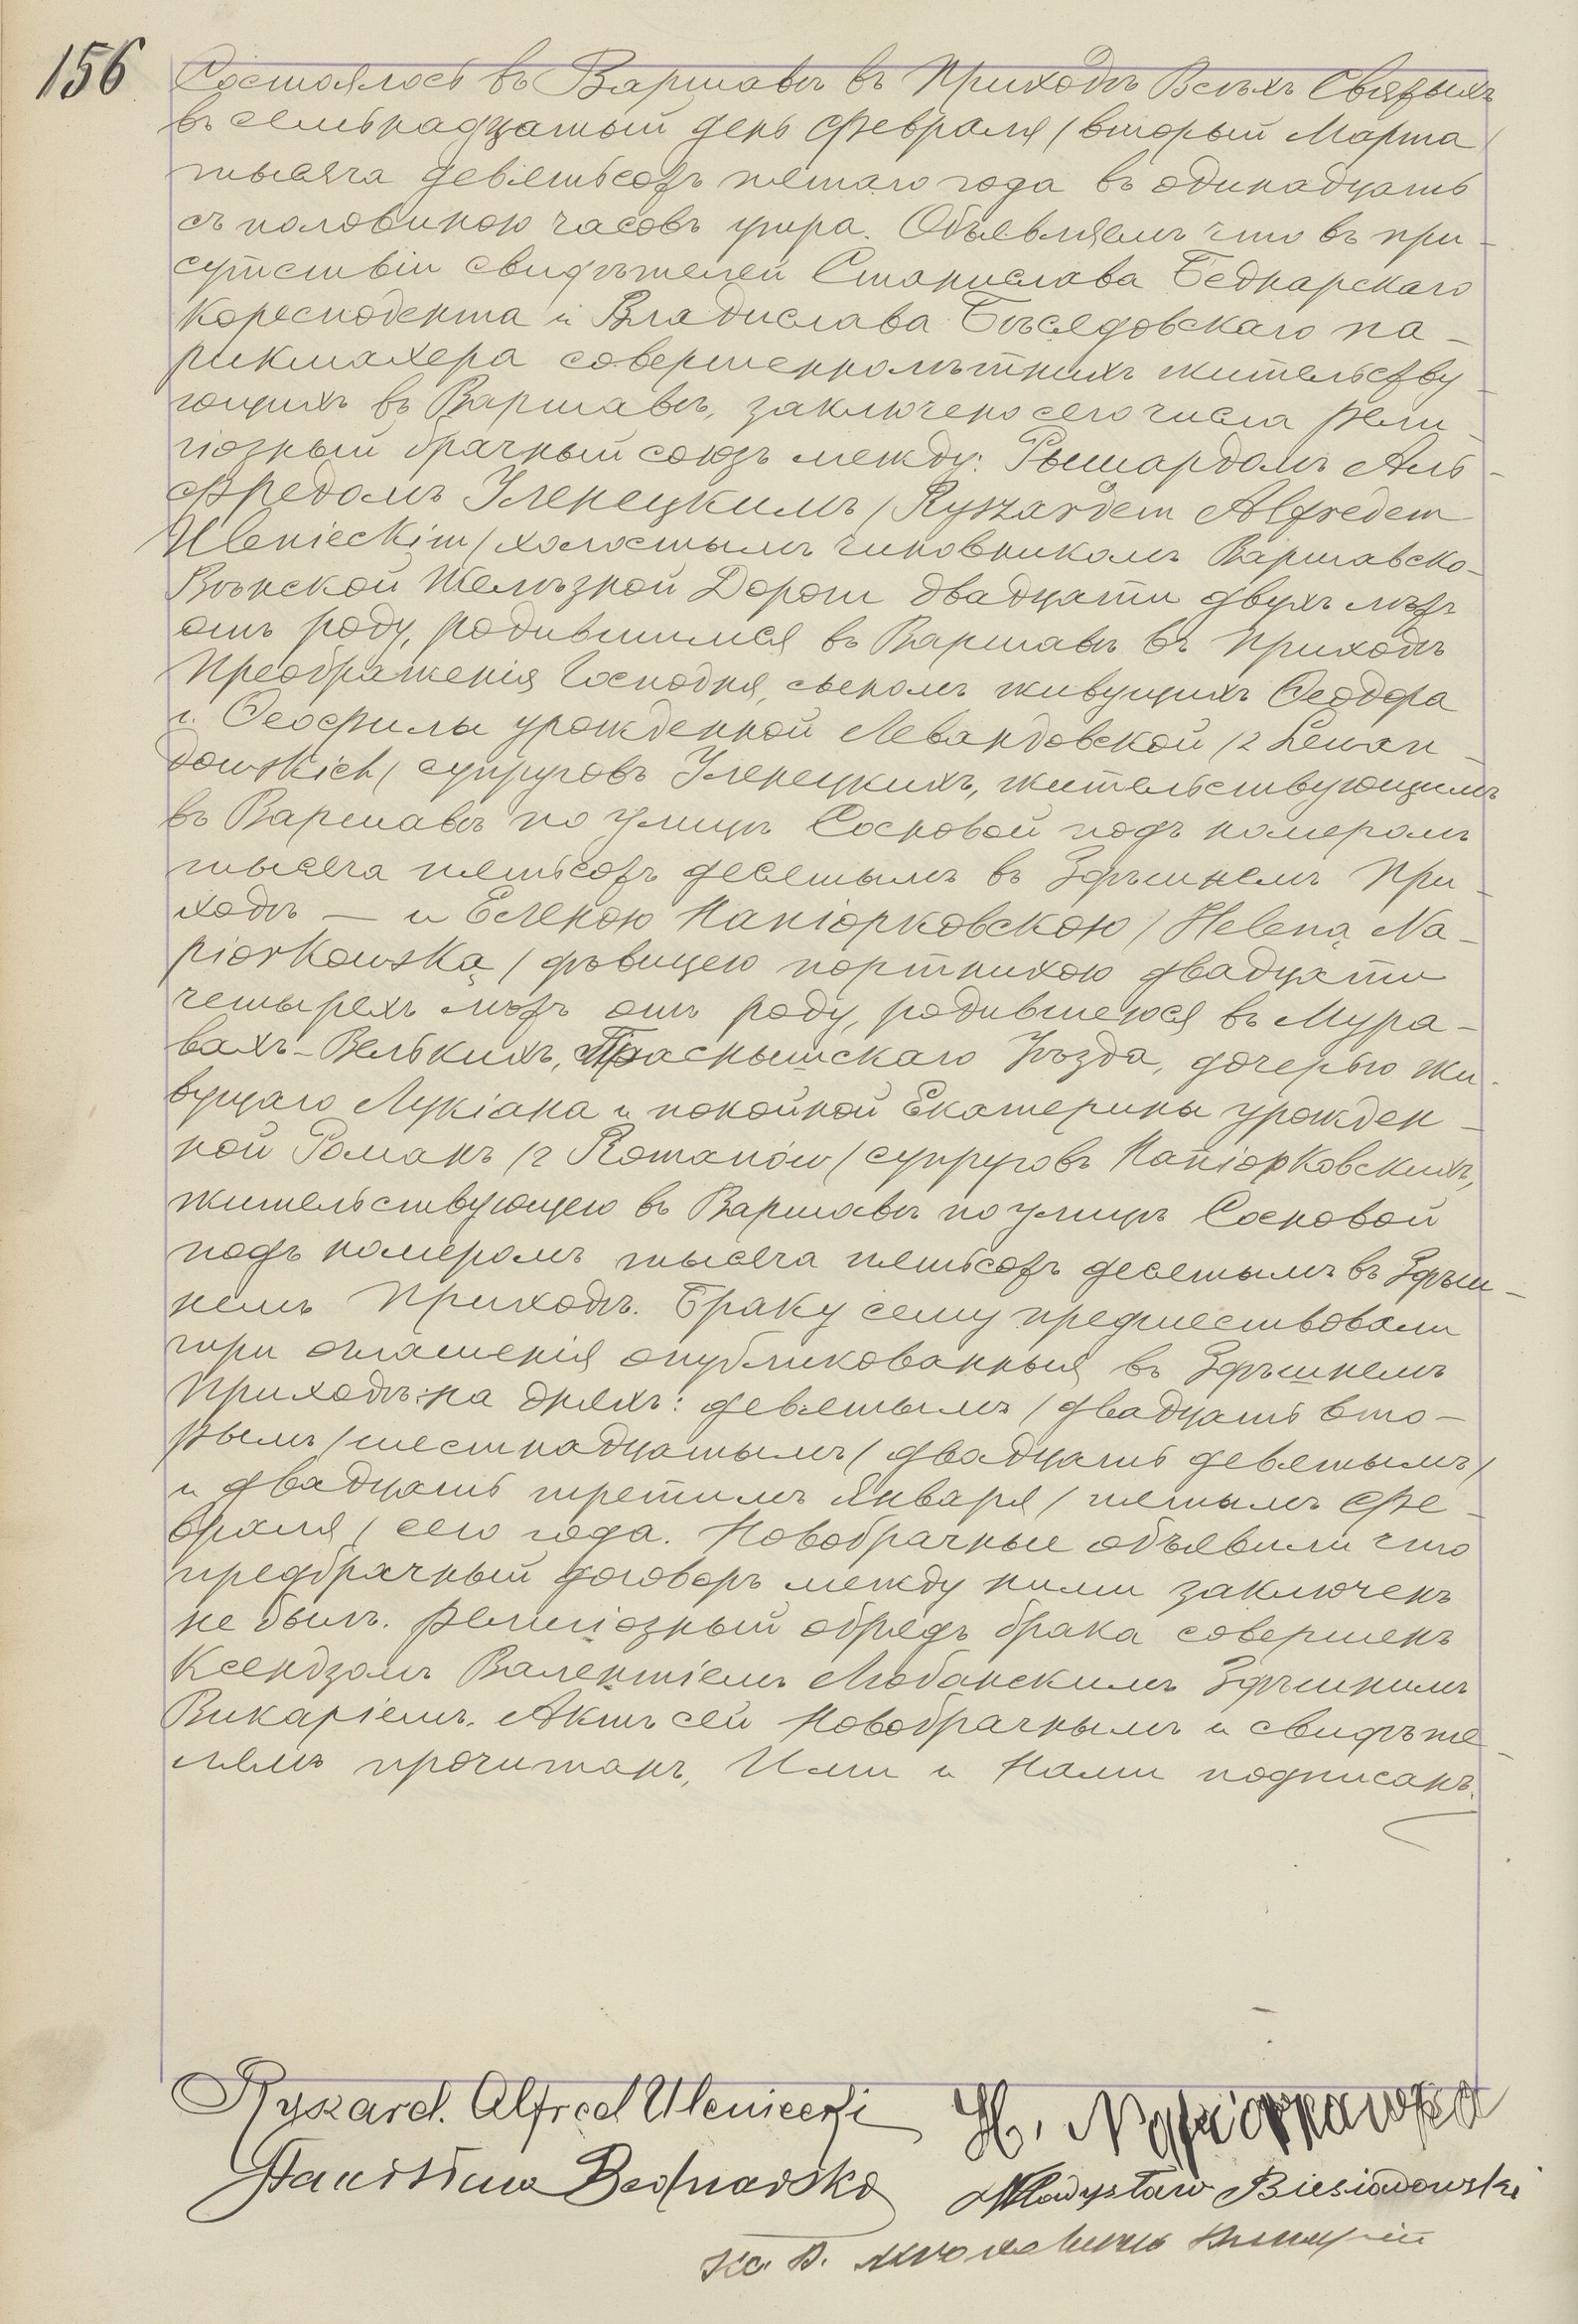 156
Состоялось въ Варшавѣ въ Приходѣ Всѣхъ Святыхъ
въ семьнадцатый день Февраля /второй Марта/
тысяча девятьсотъ пятаго года въ одинадцать
съ половиною часовъ утра. Объявляемъ что въ при-
сутствіи свидѣтелей Станислава Беднарскаго
Коресподента и Владислава Бѣсядовскаго па-
рикмахера совершеннолѣтнихъ жительству-
ющихъ въ Варшавѣ, заключено сего числа рели-
гіозный брачный союзъ между: Рышардомъ Аль-
фредомъ Уленецкимъ /Ryszardem Alfredem
Ulenieckim/ холостымъ чиновникомъ Варшавско-
Вѣнской Желѣзной Дороги двадцати двухъ лѣтъ
отъ роду, родившимся въ Варшавѣ въ Приходѣ
Преображенія Господня, сыномъ живущихъ Ѳеодора
и Ѳеофилы урожденной Левандовской /z Lewan-
dowskich/ супруговъ Уленецкихъ, жительствующимъ
въ Варшавѣ по улицѣ Сосновой подъ номеромъ
тысяча пятьсотъ десятымъ въ Здѣшнемъ При-
ходѣ — и Еленою Напіорковскою /Heleną Na-
piorkowską/ дѣвицею портнихою двадцати
четырехъ лѣтъ отъ роду, родившеюся въ Мура-
вахъ-Велькихъ, Праснышскаго Уѣзда, дочерью жи-
вущаго Лукіана и покойной Екатерины урожден-
ной Романъ /z Romanów/ супруговъ Напіорковскихъ,
жительствующею въ Варшавѣ по улицѣ Сосновой
подъ номеромъ тысяча пятьсотъ десятымъ въ Здѣш-
немъ Приходѣ. Браку сему предшествовали
три оглашенія опубликованныя въ Здѣшнемъ
Приходѣ: на дняхъ: девятымъ /двадцать вто-
рымъ/ шестнадцатымъ /двадцать девятымъ/
и двадцать третимъ Января /пятымъ Фе-
враля/ сего года. Новобрачные объявили что
предбрачный договоръ между ними заключенъ
не былъ. Религіозный обрядъ брака совершенъ
Ксендзомъ Валентіемъ Любанскимъ Здѣшнимъ
Викаріемъ. Актъ сей Новобрачнымъ и свидѣте-
лямъ прочитанъ, Ими и Нами подписанъ.
Ryszard. Alfred Uleniecki H. Napiorkowska
Stanisław Bednarski Władysław Biesiadowski
Кс. В.